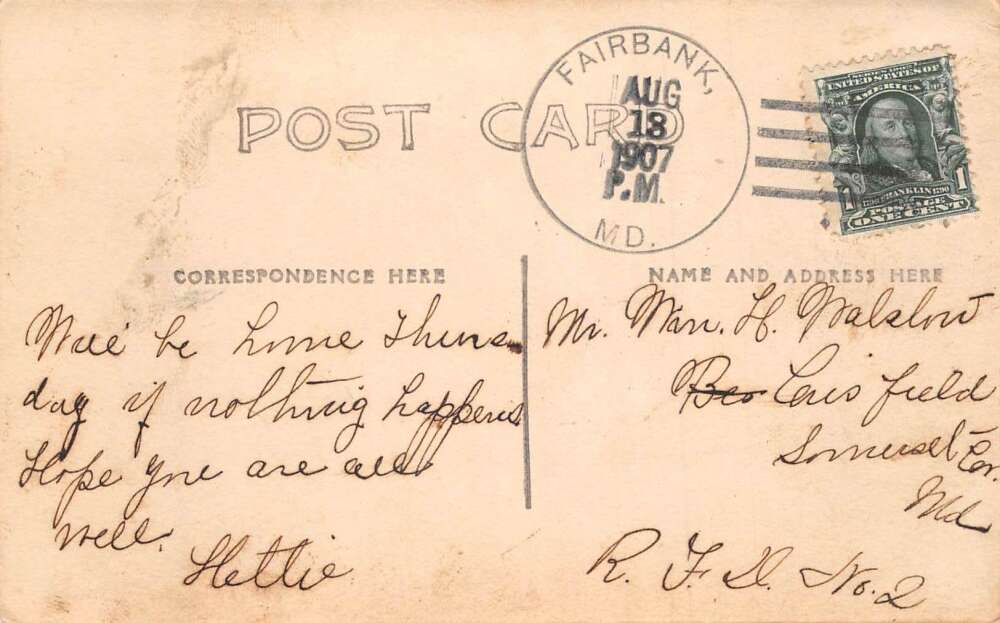 POST CARD
FAIRBANK,
AUG
13
1907
P.M.
MD.
SERIES 1902
UNITED STATES OF
AMERICA
1 1790 FRANKLIN 1790 1
POSTAGE
ONE CENT
CORRESPONDENCE HERE
Will be home Thurs-
day if nothing happens
Hope you are all
well.
Hettie
NAME AND ADDRESS HERE
Mr. Wm. H. Walston
Cris field
Somerset Co.
Md
R. F. D. No. 2